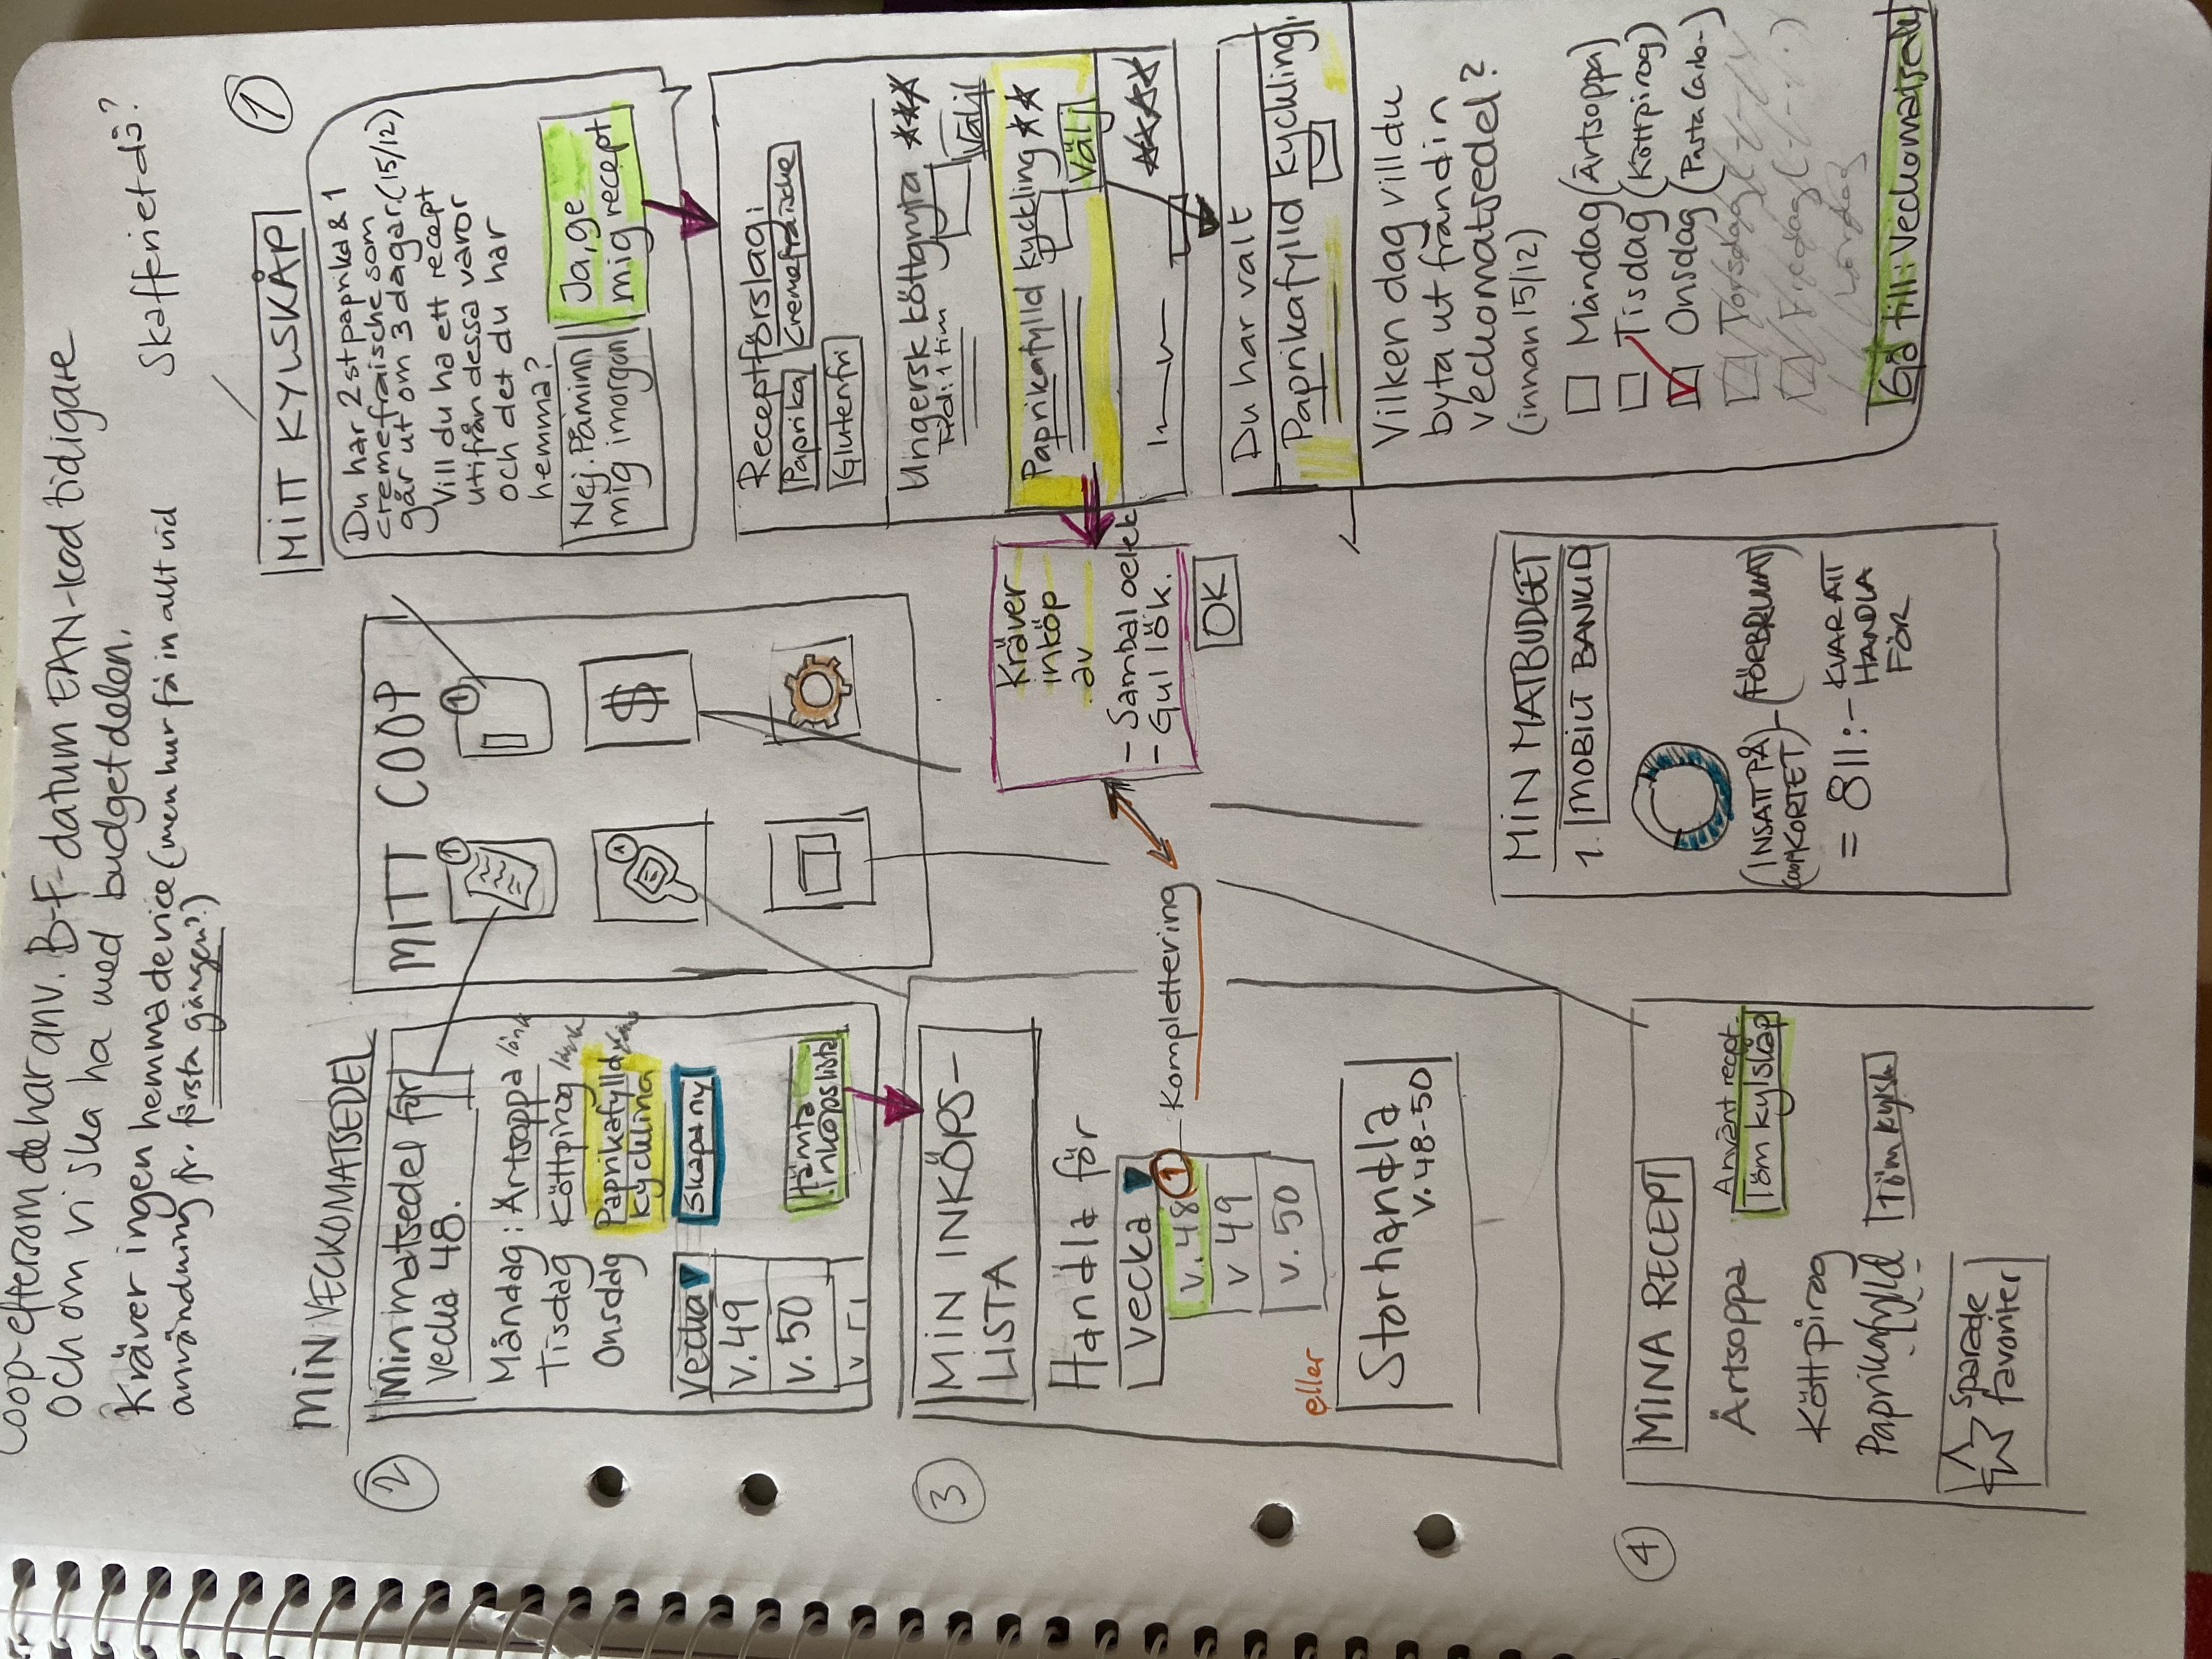 Coop-eftersom de har anv. B-F-datum EAN-kod tidigare
och om vi ska ha med budgetdelen.
Kräver ingen hemmadevice (men hur få in allt vid
användning fr. första gången?)
Skafferiet då?
1
MITT KYLSKÅP
Du har 2 st paprika & 1
cremefraische som
går ut om 3 dagar. (15/12)
Vill du ha ett recept
utifrån dessa varor
och det du har
hemma?
Nej. Påminn
mig imorgon
Ja, ge
mig recept
Receptförslag:
Paprika
Cremefraische
Glutenfri
Ungersk köttgryta
Tid: 1 tim
Välj
Paprikafylld kyckling
Välj
Kräver
inköp
av
- Sambal oelek
- Gul lök.
OK
Du har valt
Paprikafylld kyckling
Vilken dag vill du
byta ut från din
veckomatsedel?
(innan 15/12)
Måndag (Ärtsoppa)
Tisdag (Köttpirog)
Onsdag (Pasta Carb-)
Torsdag (
Fredag (- - - )
Lördag
Gå till: Veckomatsedel
MITT COOP
1
1
1
$
2
MIN VECKOMATSEDEL
Min matsedel för
vecka 48.
Måndag: Ärtsoppa länk
Tisdag Köttpirog länk
Onsdag Paprikafylld länk
kyckling
Vecka
v.49
v. 50
v. 51
Skapa ny
Hämta
inköpslista
3
MIN INKÖPS-
LISTA
Handla för
vecka
v. 48 1
v 49
v. 50
Komplettering
eller
Storhandla
v. 48-50
4
MINA RECEPT
Ärtsoppa
Använt recept.
Töm kylskåp
Köttpirog
Paprikafylld
Töm kylsk
Sparade
favoriter
MIN MATBUDGET
1. MOBILT BANKID
(INSATT PÅ
COOPKORTET) - (FÖRBRUKAT)
= 811:- KVAR ATT
HANDLA
FÖR